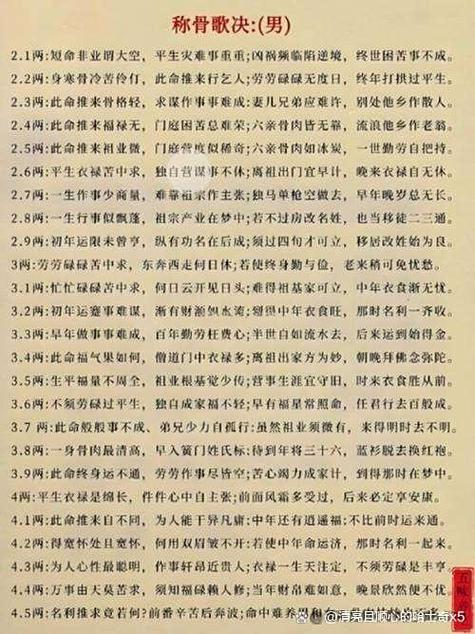 称骨歌决:(男)
2.1两:短命非业谓大空，平生灾难事重重;凶祸频临陷逆境，终世困苦事不成。
2.2两:身寒骨冷苦伶仃，此命推来行乞人;劳劳碌碌无度日，终年打拱过平生。
2.3两:此命推来骨格轻，求谋作事事难成;妻儿兄弟应难许，别处他乡作散人。
2.4两:此命推来福禄无，门庭困苦总难荣;六亲骨肉皆无靠，流浪他乡作老翁。
2.5两:此命推来祖业微，门庭营度似稀奇;六亲骨肉如冰炭，一世勤劳自把持。
2.6两:平生衣禄苦中求，独自营谋事不休;离祖出门宜早计，晚来衣禄自无休。
2.7两:一生作事少商量，难靠祖宗作主张;独马单枪空做去，早年晚岁总无长。
2.8两:一生行事似飘蓬，祖宗产业在梦中;若不过房改名姓，也当移徒二三通。
2.9两:初年运限未曾亨，纵有功名在后成;须过四旬才可立，移居改姓始为良。
3两:劳劳碌碌苦中求，东奔西走何日休;若使终身勤与俭，老来稍可免忧愁。
3.1两:忙忙碌碌苦中求，何日云开见日头;难得祖基家可立，中年衣食渐无忧。
3.2两:初年运蹇事难谋，渐有财源如水流;到得中年衣食旺，那时名利一齐收。
3.3两:早年做事事难成，百年勤劳枉费心;半世自如流水去，后来运到始得金。
3.4两:此命福气果如何，僧道门中衣禄多;离祖出家方为妙，朝晚拜佛念弥陀。
3.5两:生平福量不周全，祖业根基觉少传;营事生涯宜守旧，时来衣食胜从前。
3.6两:不须劳碌过平生，独自成家福不轻;早有福星常照命，任君行去百般成。
3.7 两:此命般般事不成、弟兄少力自孤行:虽然祖业须微有，来得明时去不明。
3.8两:一身骨肉最清高，早入簧门姓氏标;待到年将三十六，蓝衫脱去换红袍。
3.9两:此命终身运不通，劳劳作事尽皆空;苦心竭力成家计，到得那时在梦中。
4两:平生衣禄是绵长，件件心中自主张;前面风霜多受过，后来必定享安康。
4.1两:此命推来自不同，为人能干异凡庸;中年还有逍遥福;不比前时运来通。
4.2两:得宽怀处且宽怀，何用双眉皱不开;若使中年命运济，那时名利一起来。
4.3两:为人心性最聪明，作事轩昂近贵人;衣禄一生天注定，不须劳碌是丰亨。
4.4两:万事由天莫苦求，须知福碌赖人修;当年财帛难如意，晚景欣然便不优。
4.5两:名利推求竟若何?前番辛苦后奔波;命中难养
@清幕自顺心的骑士奇x5